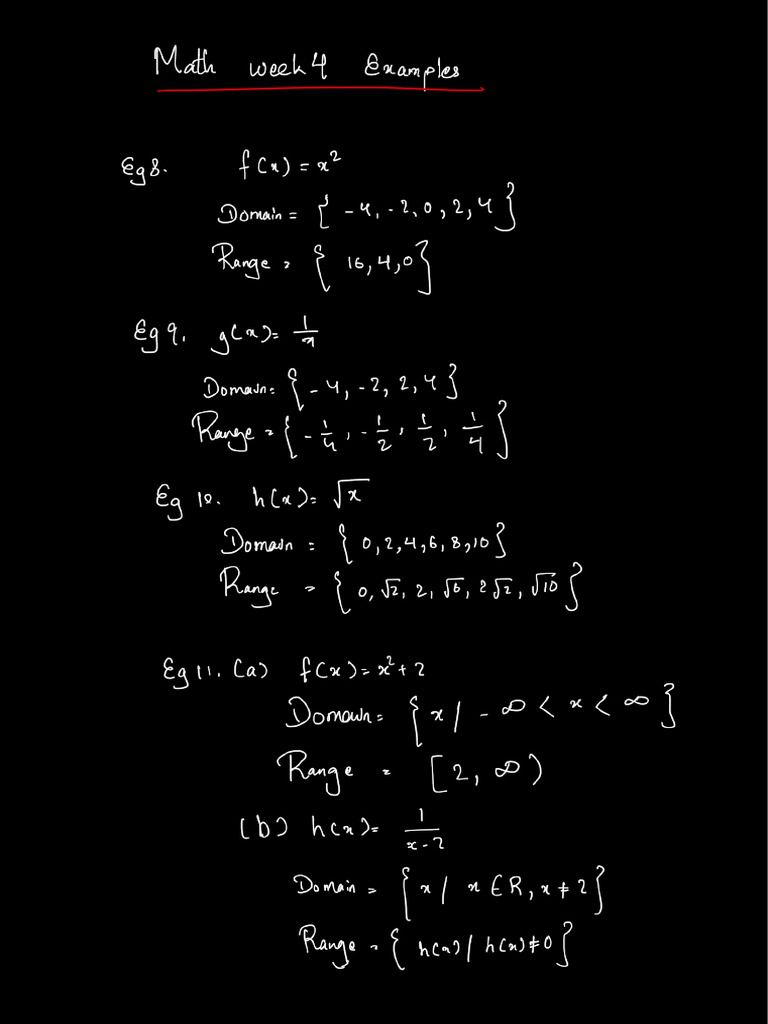 Math week 4 Examples
Eg 8. f(x) = x²
Domain = { -4, -2, 0, 2, 4 }
Range = { 16, 4, 0 }
Eg 9. g(x) = 1/x
Domain = { -4, -2, 2, 4 }
Range = { -1/4, -1/2, 1/2, 1/4 }
Eg 10. h(x) = √x
Domain = { 0, 2, 4, 6, 8, 10 }
Range = { 0, √2, 2, √6, 2√2, √10 }
Eg 11. (a) f(x) = x² + 2
Domain = { x / -∞ < x < ∞ }
Range = [2, ∞)
(b) h(x) = 1/(x-2)
Domain = { x / x ∈ R, x ≠ 2 }
Range = { h(x) / h(x) ≠ 0 }